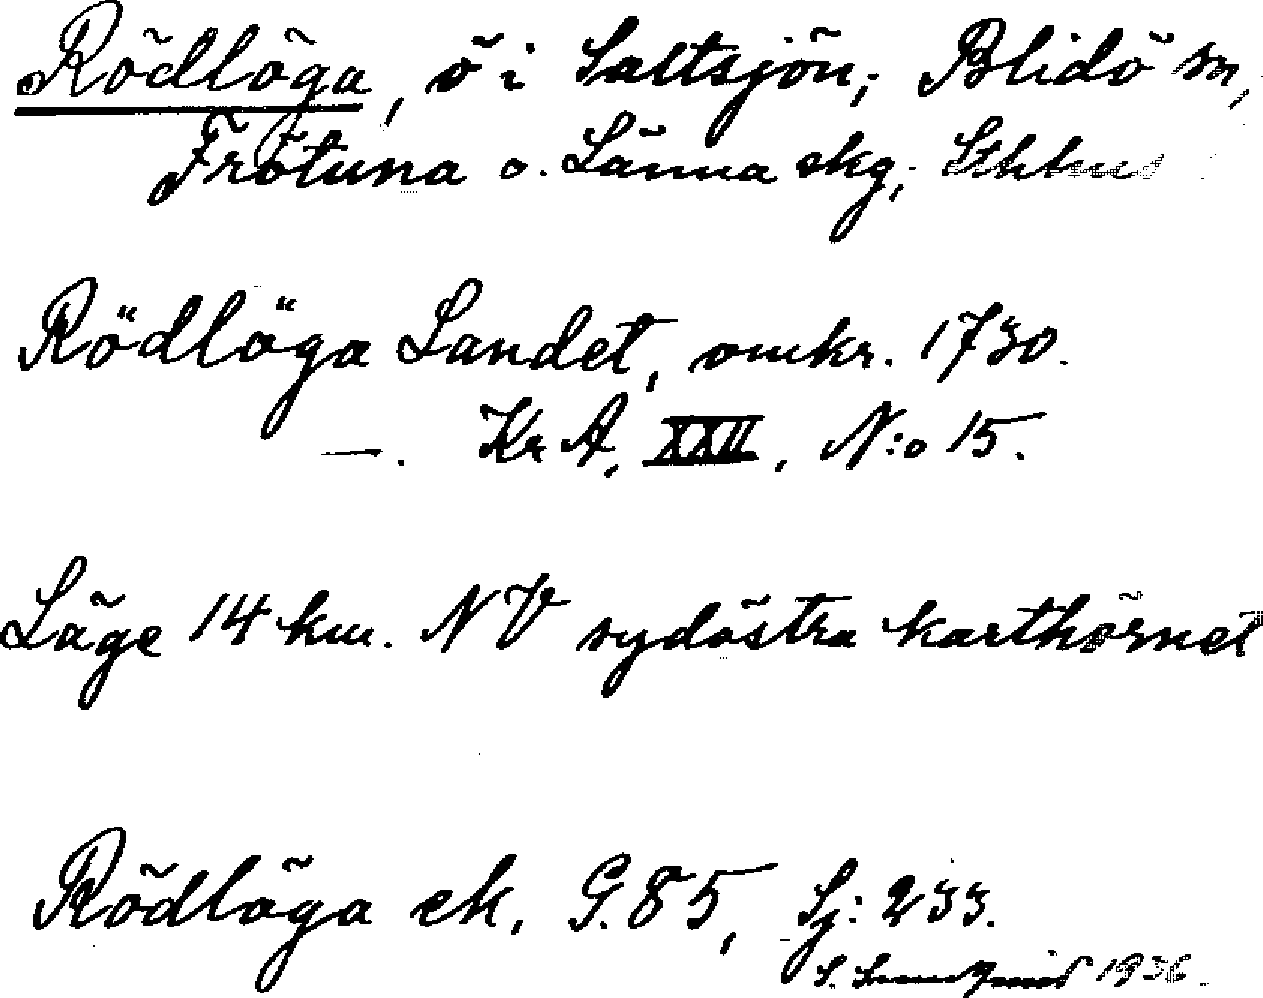 Rödlöga, ö i Saltsjön; Blidö sn,
Frötuna o. Länna skg; Sthlms
Rödlöga Landet, omkr. 1730.
—. KrA, XXII, N:o 15.
Läge 14 km. NV sydöstra karthörnet
Rödlöga ek. G. 85, Sj: 233.
S. 1936.